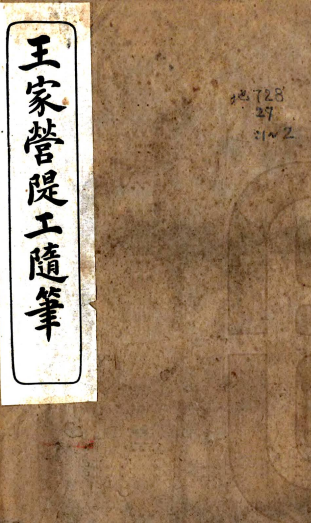 王家營隄工隨筆
地728
27
:1~2